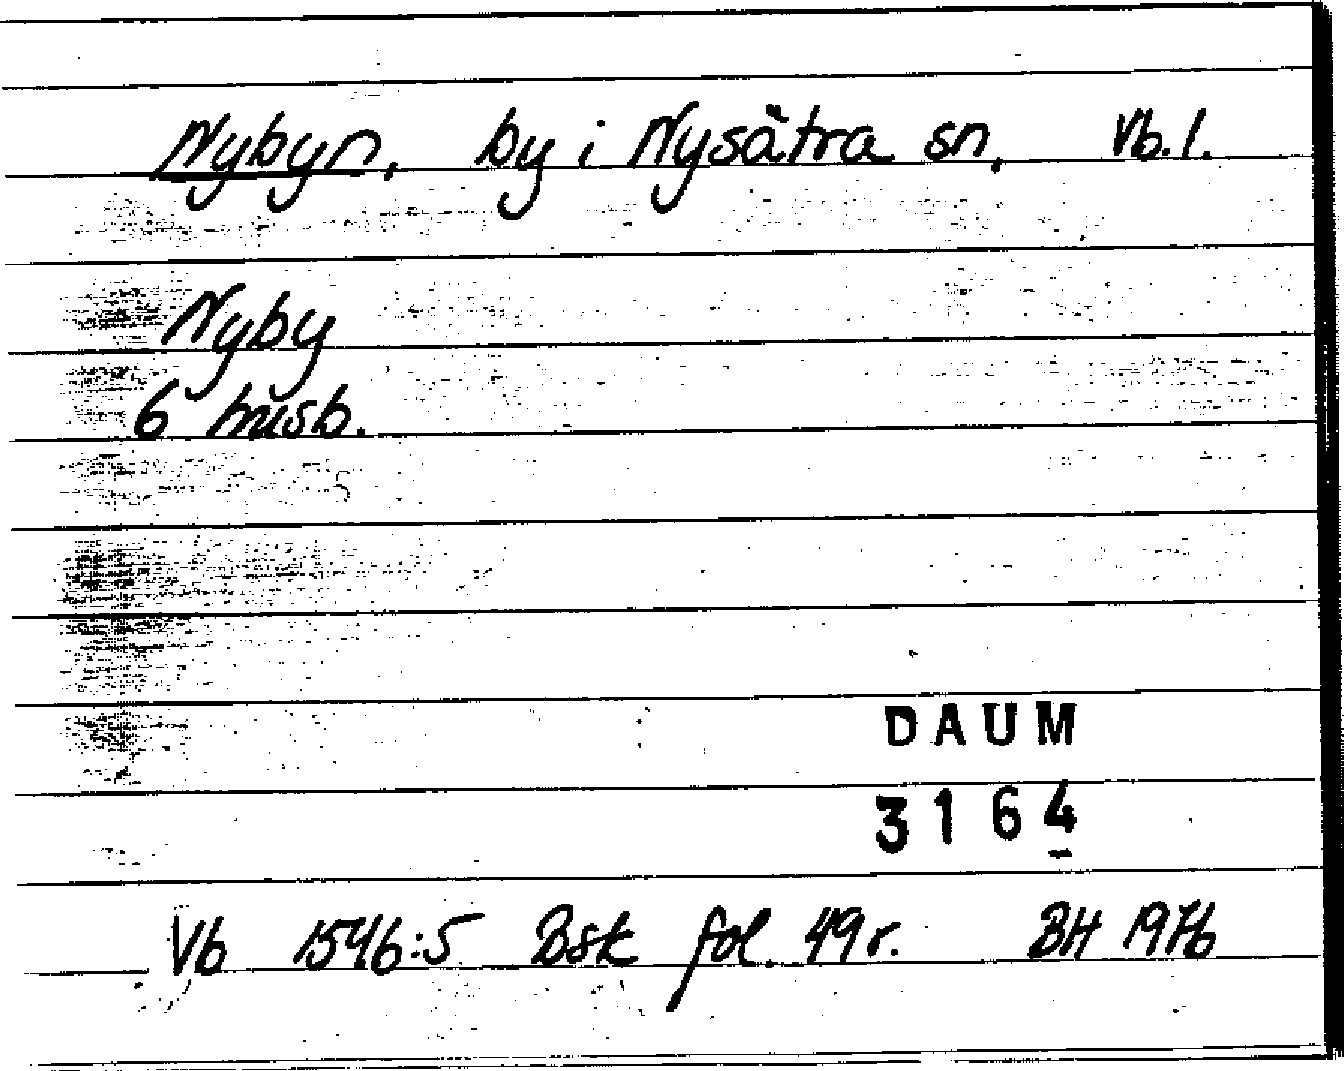 Nybyn, by i Nysätra sn, Vb.l.
Nyby
6 husb.
DAUM
3164
Vb 1546:5 Bsk fol. 49r. BH 1976